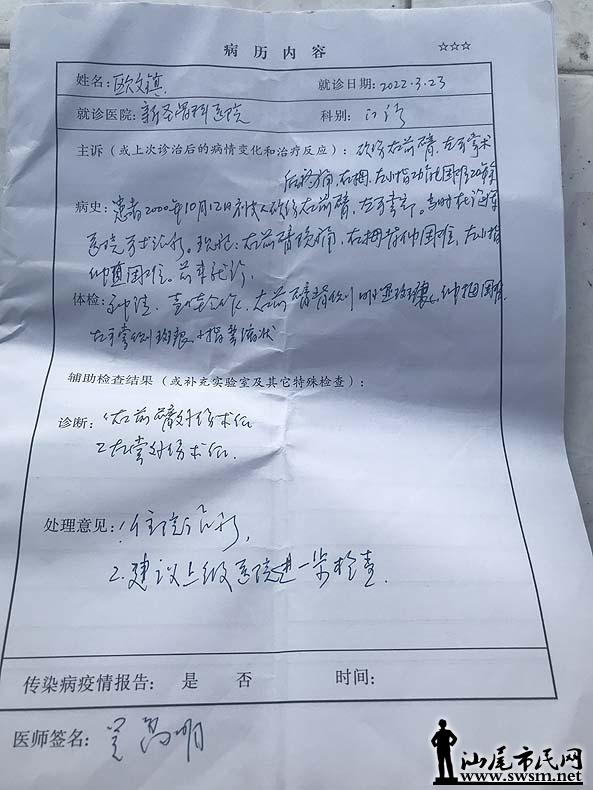 病历内容 ☆☆☆
姓名: 欧文镇 就诊日期: 2022.3.23
就诊医院: 骨科医院 科别: 门诊
主诉（或上次诊治后的病情变化和治疗反应）: 砍伤右前臂、左手掌术
后疼痛、右拇、左小指功能困难20余年
病史: 患者2000年10月12日被人砍伤右前臂、左手掌。当时在
医院手术治疗。现在: 右前臂疼痛, 右拇背伸困难, 左小指
伸直困难。前来就诊。
体检: 神清, 查体合作, 右前臂背侧 明显疤痕, 伸拇困难
左手掌侧疤痕 小指 症状
辅助检查结果（或补充实验室及其它特殊检查）:
诊断: 1.右前臂外伤术后
2.左掌外伤术后.
处理意见: 1.住院治疗,
2.建议上级医院进一步检查.
传染病疫情报告: 是 否 时间:
医师签名:
汕尾市民网
www.swsm.net